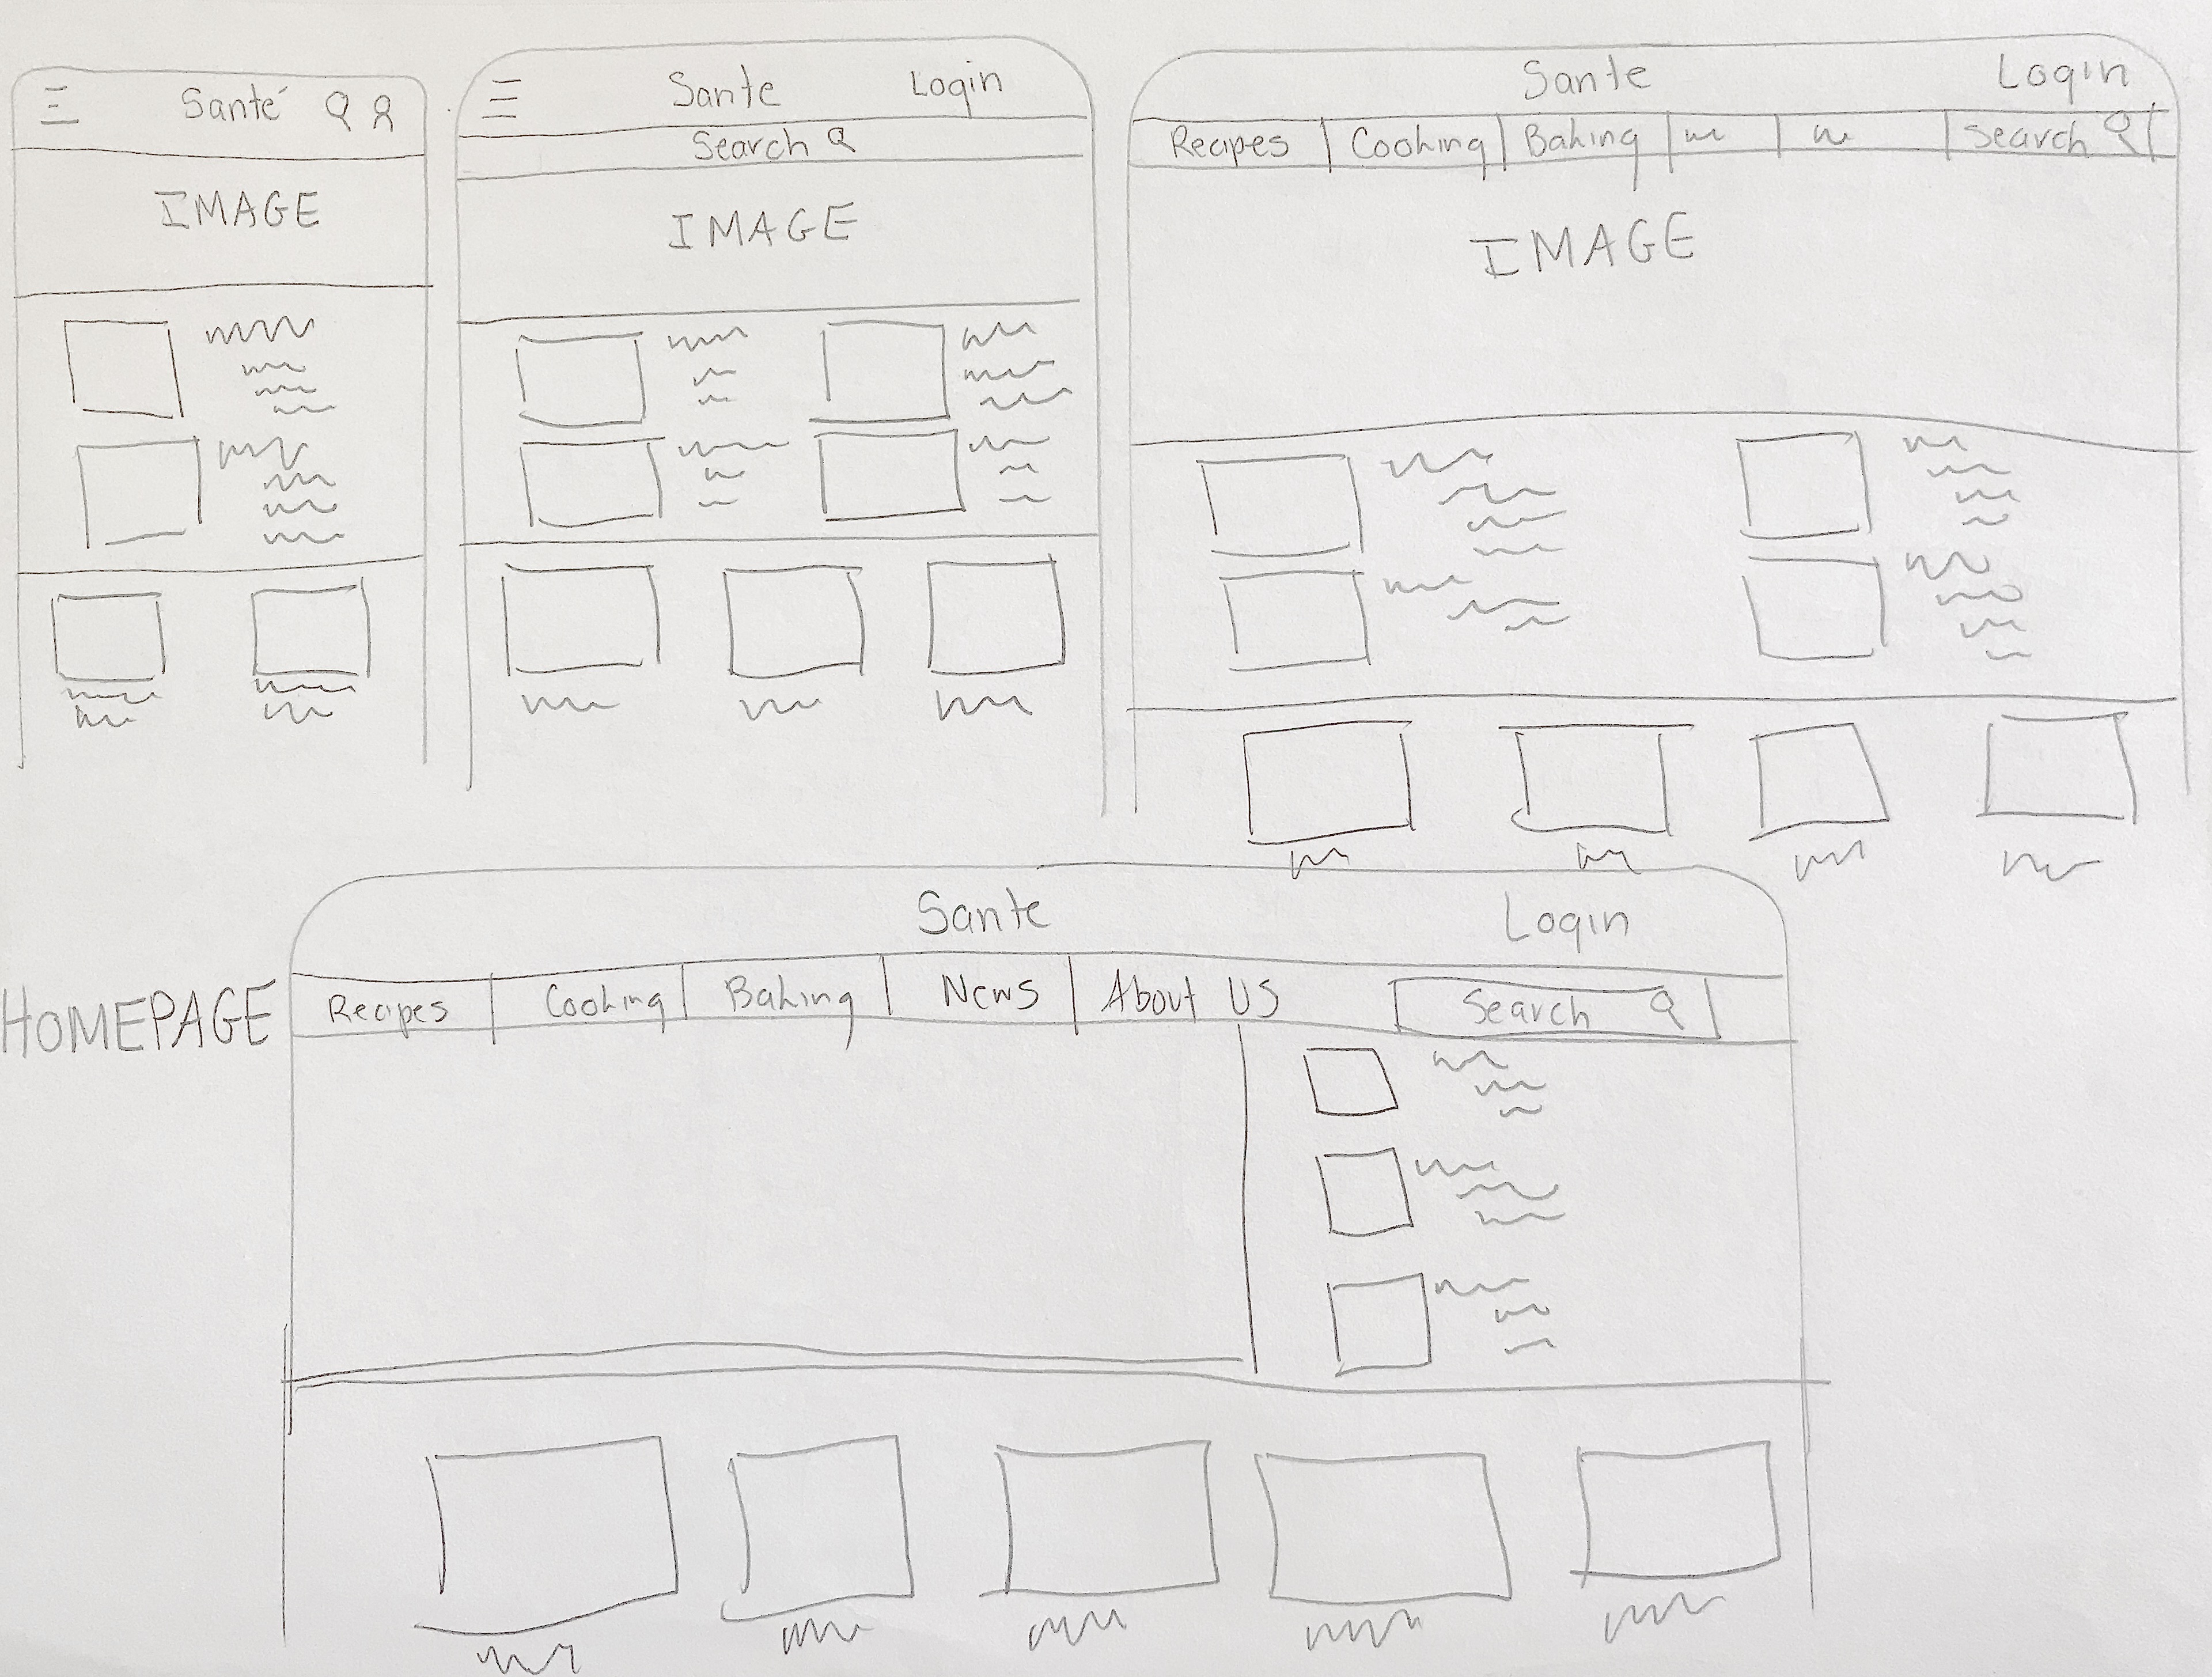 Santé
IMAGE
Sante Login
Search
IMAGE
Sante Login
Recipes Cooking Baking Search
IMAGE
HOMEPAGE
Sante Login
Recipes Cooking Baking News About US Search